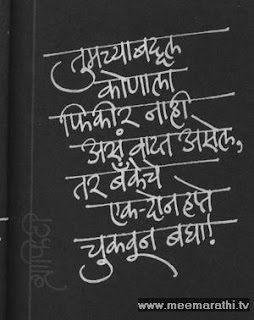 तुमच्याबद्दल
कोणाला
फिकीर नाही
असं वाटत असेल,
तर बँकेचे
एक-दोन हप्ते
चुकवून बघा!
ग्राफिटी
www.meemarathi.tv